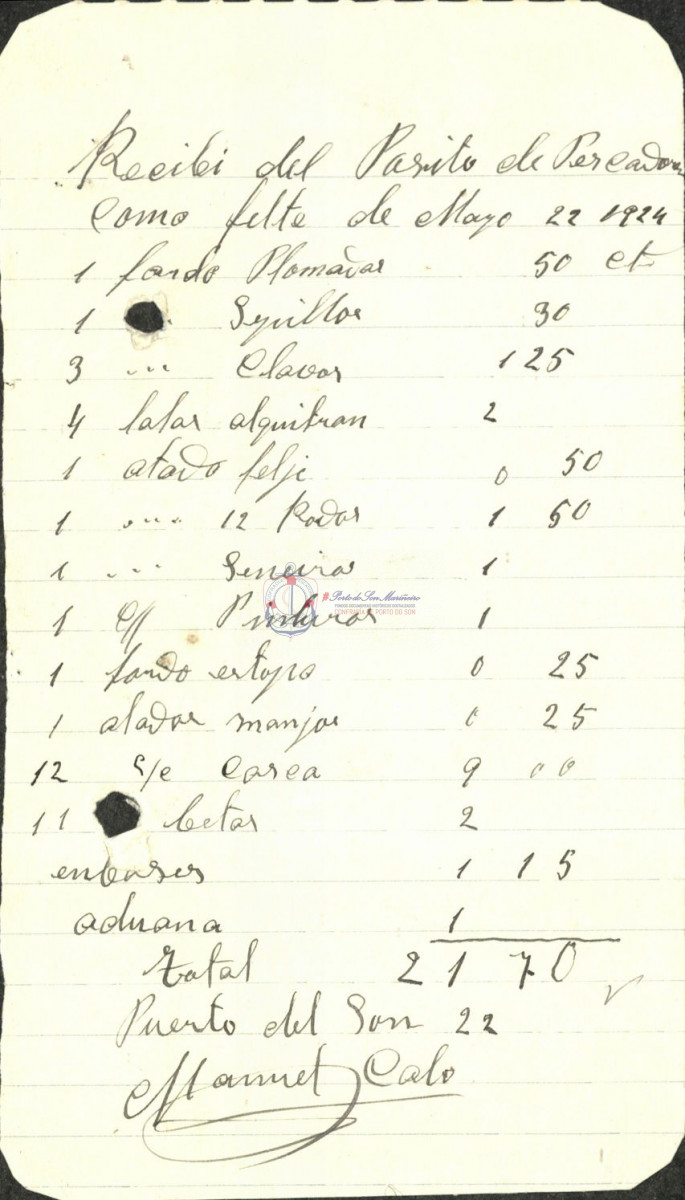 Recibi del Posito de Pescadores
como flete de Mayo 22 1924
1 fardo Plomadas 50 ct
1 Sepillos 30
3 ... Clavos 1 25
4 latas alquitran 2
1 atado felje 0 50
1 .... 12 Rodos 1 50
1 ... 1
1 c/ Pinturas 1
1 fardo estopa 0 25
1 atados manjos 0 25
12 s/c casca 9 00
11 betas 2
enbases 1 15
aduana 1
Total 21 70
Puerto del Son 22
Manuel Calo
Porto do Son Mariñeiro
FONDOS DOCUMENTAIS HISTÓRICOS DIXITALIZADOS
CONFRARÍA DE PORTO DO SON